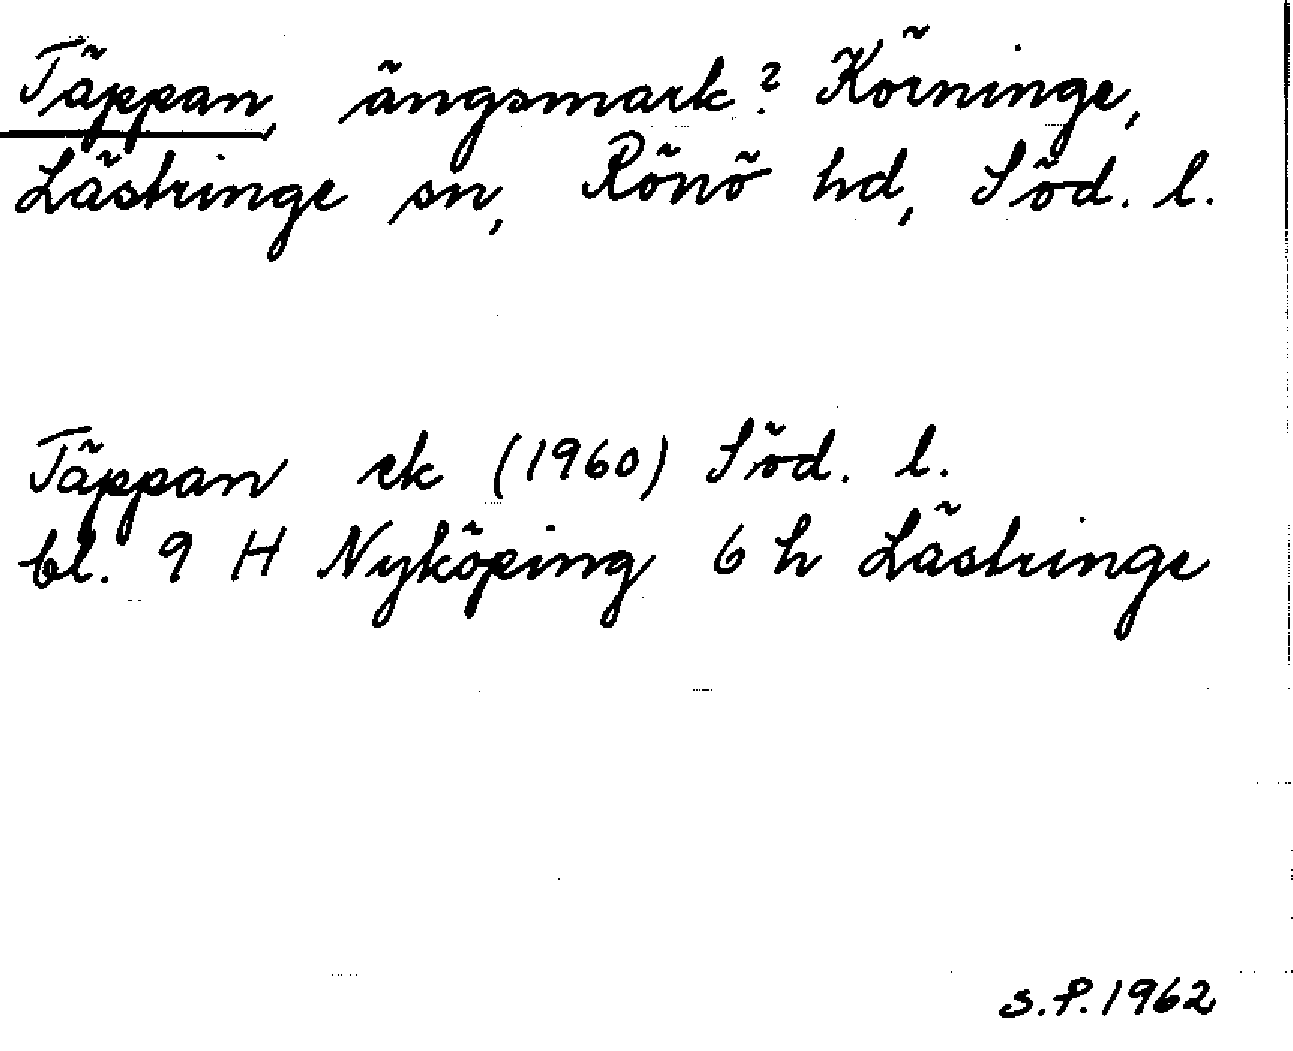 Täppan, ängsmark? Körninge,
Lästringe sn, Rönö hd, Söd. l.
Täppan ek (1960) Söd. l.
bl. 9 H Nyköping 6 h Lästringe
S.P. 1962